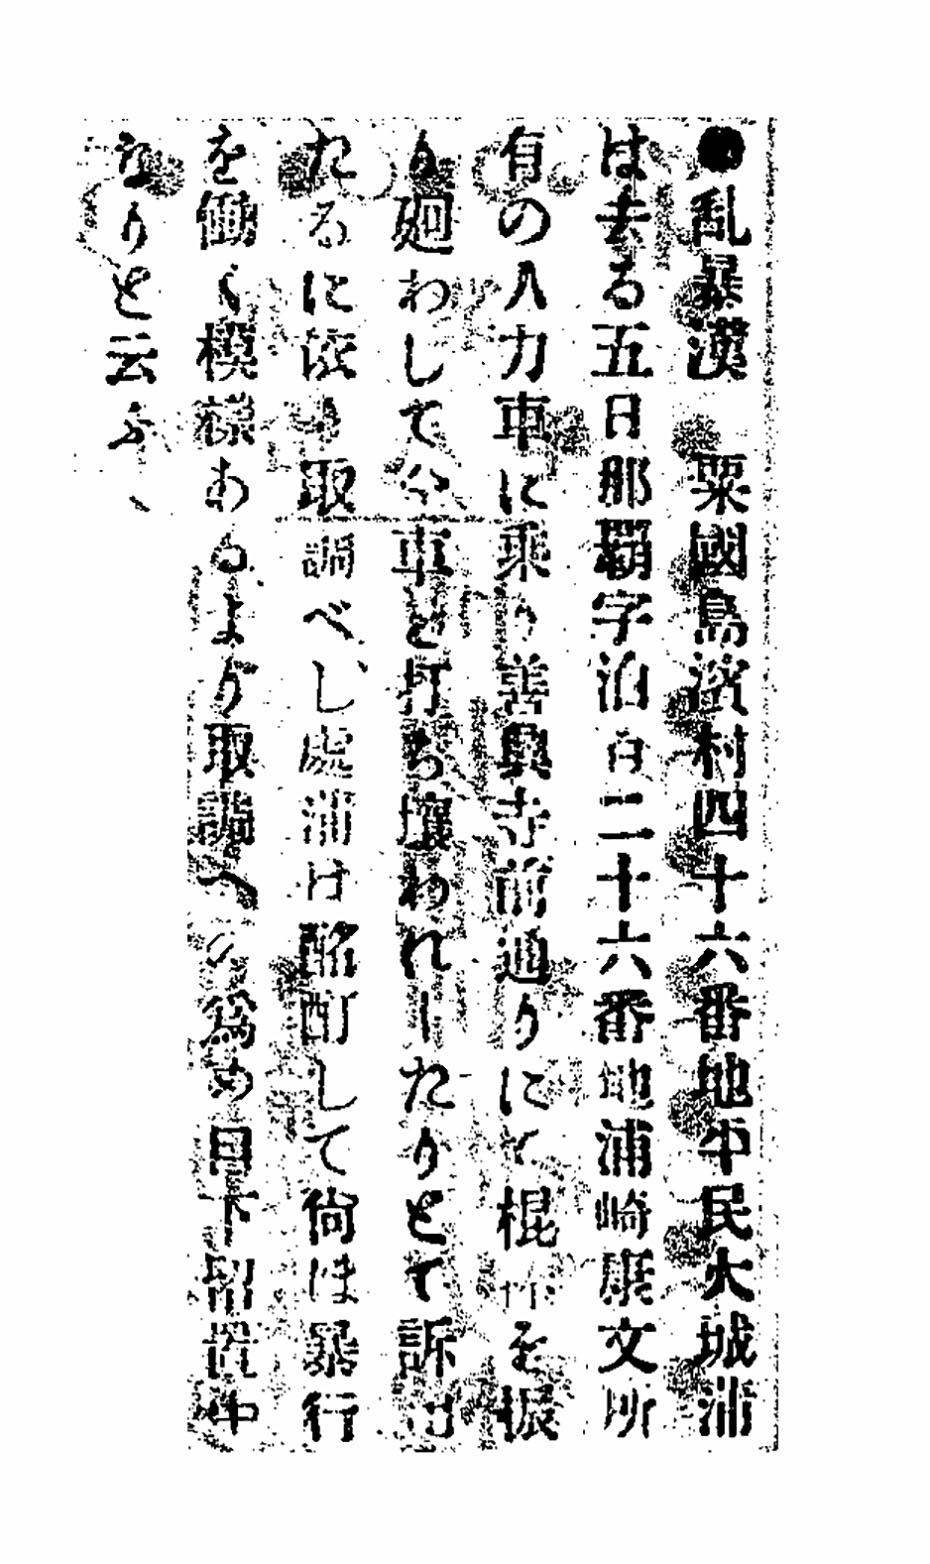 ●乱暴漢　粟國島濱村四十六番地平民大城浦
は去る五日那覇字泊百二十六番地浦崎康文所
有の人力車に乗り善興寺前通りにて棍棒を振
り廻わして全車を打ち壊われしたりとて訴出
たるに依り取調べし處浦は酩酊して尙ほ暴行
を働く模様あるより取調への為め目下留置中
なりと云ふ、